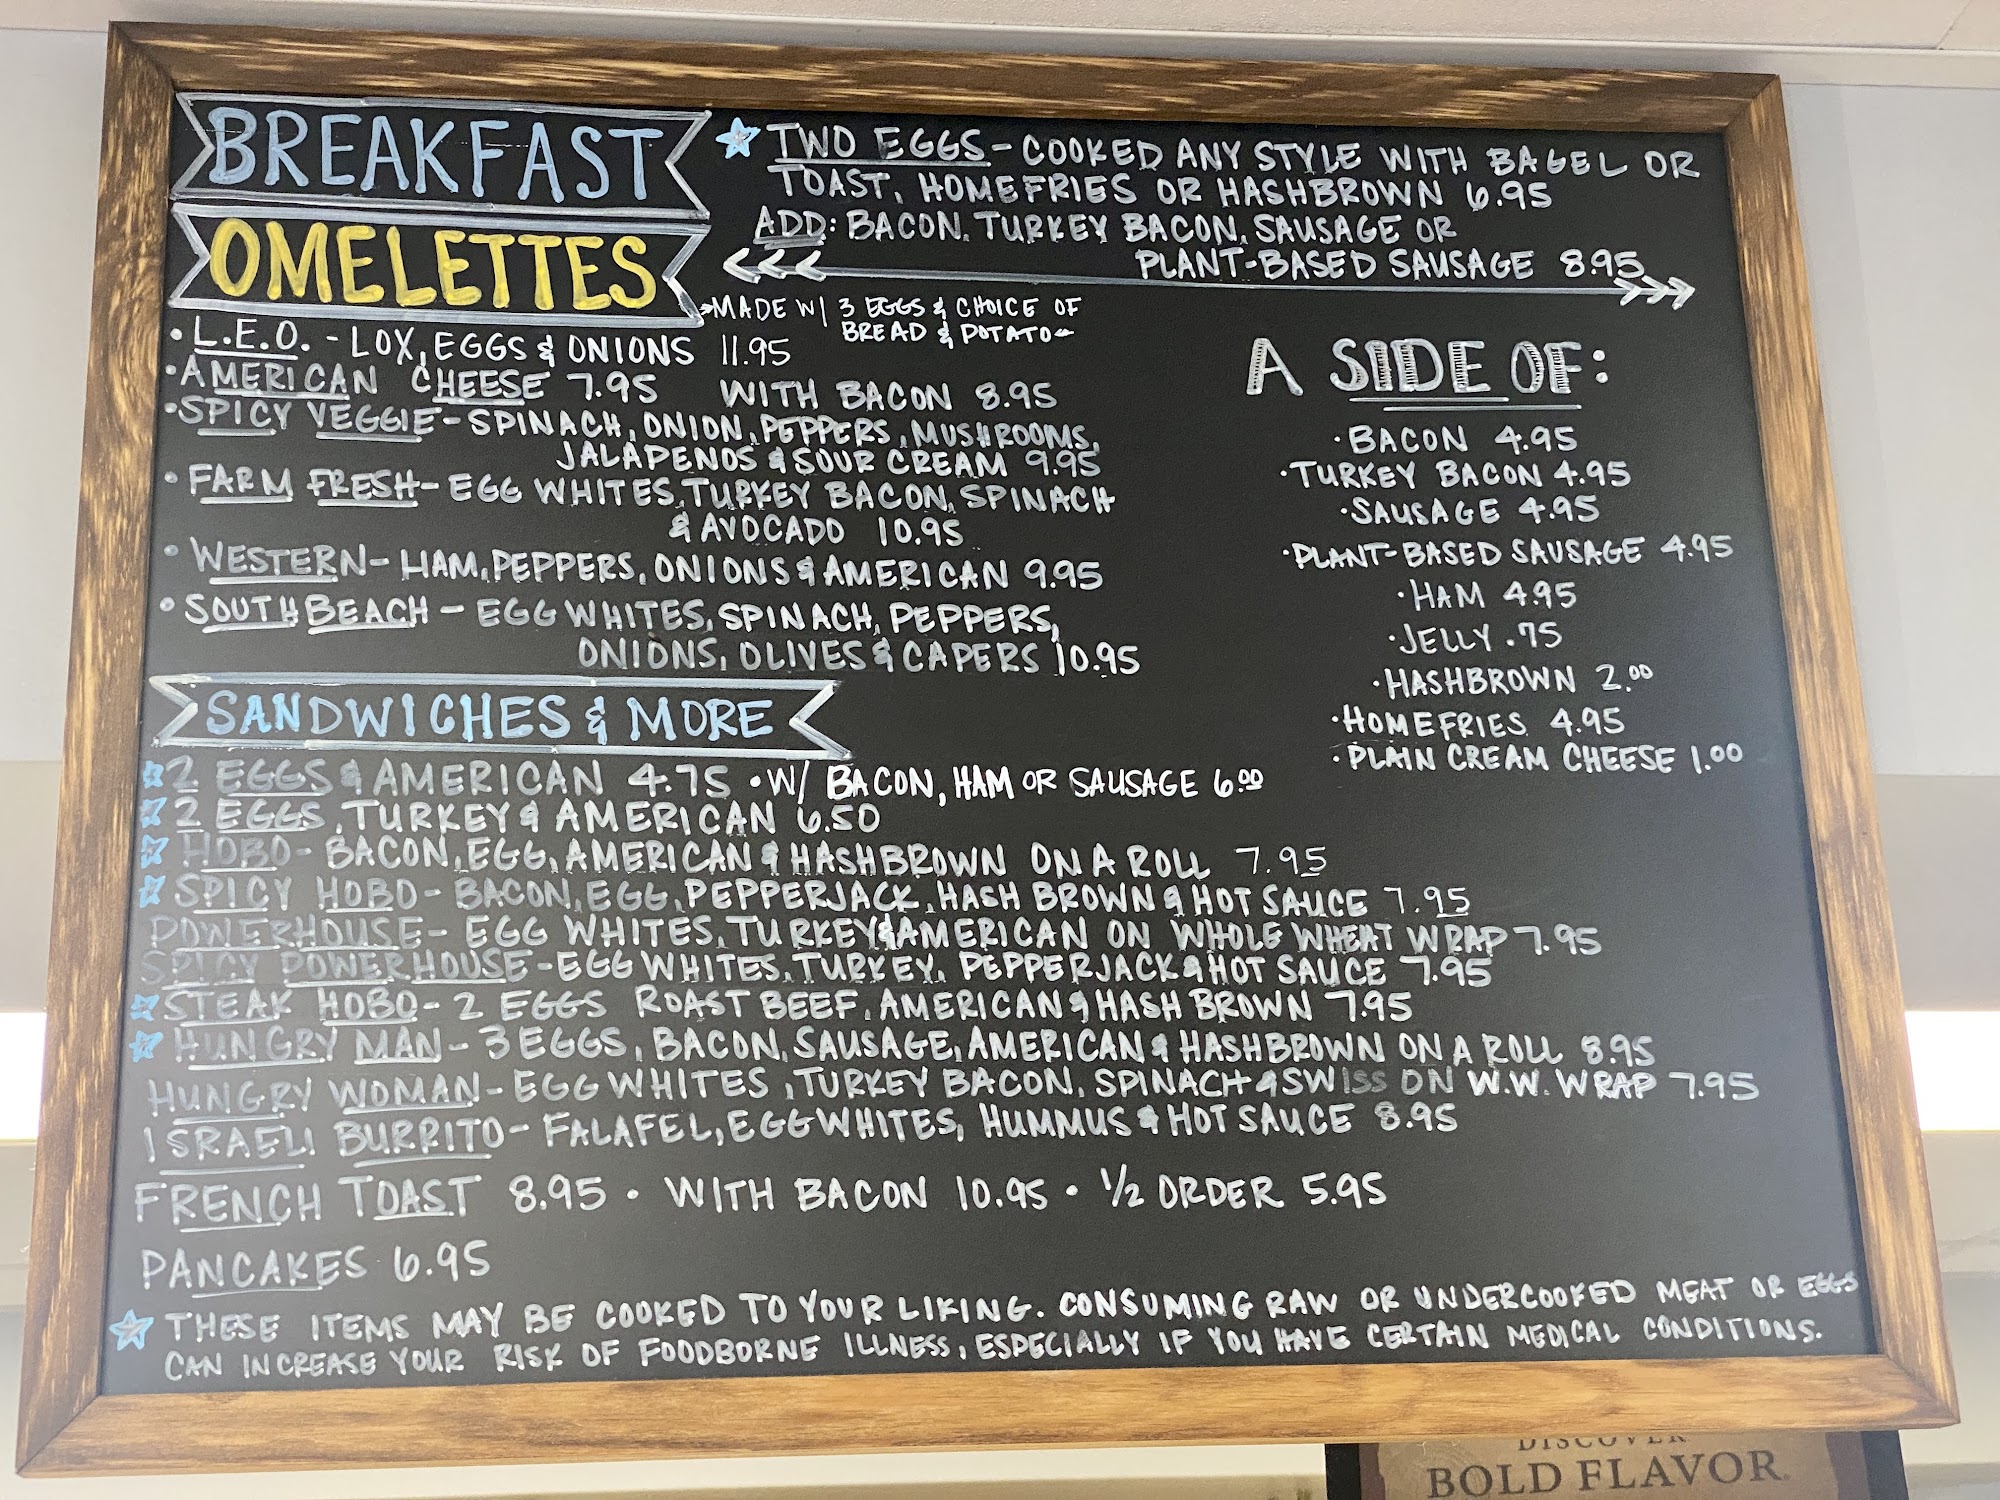 BREAKFAST
OMELETTES
TWO EGGS - COOKED ANY STYLE WITH BAGEL OR
TOAST, HOMEFRIES OR HASHBROWN 6.95
ADD: BACON, TURKEY BACON, SAUSAGE OR
PLANT-BASED SAUSAGE 8.95
MADE W/ 3 EGGS & CHOICE OF
BREAD & POTATO
• L.E.O. - LOX, EGGS & ONIONS 11.95
• AMERICAN CHEESE 7.95 WITH BACON 8.95
• SPICY VEGGIE - SPINACH, ONION, PEPPERS, MUSHROOMS,
JALAPENOS & SOUR CREAM 9.95
• FARM FRESH - EGG WHITES, TURKEY BACON, SPINACH
& AVOCADO 10.95
• WESTERN - HAM, PEPPERS, ONIONS & AMERICAN 9.95
• SOUTH BEACH - EGG WHITES, SPINACH, PEPPERS,
ONIONS, OLIVES & CAPERS 10.95
A SIDE OF:
• BACON 4.95
• TURKEY BACON 4.95
• SAUSAGE 4.95
• PLANT-BASED SAUSAGE 4.95
• HAM 4.95
• JELLY .75
• HASHBROWN 2.00
• HOMEFRIES 4.95
• PLAIN CREAM CHEESE 1.00
SANDWICHES & MORE
2 EGGS & AMERICAN 4.75 • W/ BACON, HAM OR SAUSAGE 6.00
2 EGGS, TURKEY & AMERICAN 6.50
HOBO - BACON, EGG, AMERICAN & HASHBROWN ON A ROLL 7.95
SPICY HOBO - BACON, EGG, PEPPERJACK, HASH BROWN & HOT SAUCE 7.95
POWERHOUSE - EGG WHITES, TURKEY & AMERICAN ON WHOLE WHEAT WRAP 7.95
SPICY POWERHOUSE - EGG WHITES, TURKEY, PEPPERJACK & HOT SAUCE 7.95
STEAK HOBO - 2 EGGS ROAST BEEF, AMERICAN & HASH BROWN 7.95
HUNGRY MAN - 3 EGGS, BACON, SAUSAGE, AMERICAN & HASHBROWN ON A ROLL 8.95
HUNGRY WOMAN - EGG WHITES, TURKEY BACON, SPINACH & SWISS ON W.W. WRAP 7.95
ISRAELI BURRITO - FALAFEL, EGG WHITES, HUMMUS & HOT SAUCE 8.95
FRENCH TOAST 8.95 • WITH BACON 10.95 • 1/2 ORDER 5.95
PANCAKES 6.95
THESE ITEMS MAY BE COOKED TO YOUR LIKING. CONSUMING RAW OR UNDERCOOKED MEAT OR EGGS
CAN INCREASE YOUR RISK OF FOODBORNE ILLNESS, ESPECIALLY IF YOU HAVE CERTAIN MEDICAL CONDITIONS.
DISCOVER
BOLD FLAVOR.